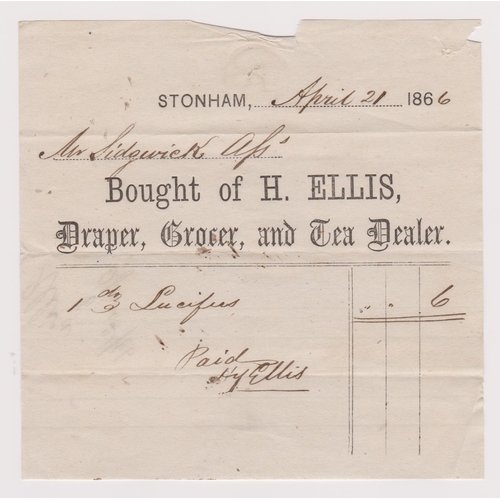 STONHAM, April 21 1866
Mr Sidgwick
Bought of H. ELLIS,
Draper, Grocer, and Tea Dealer.
1 Lucifers " " 6
Paid
Hy Ellis